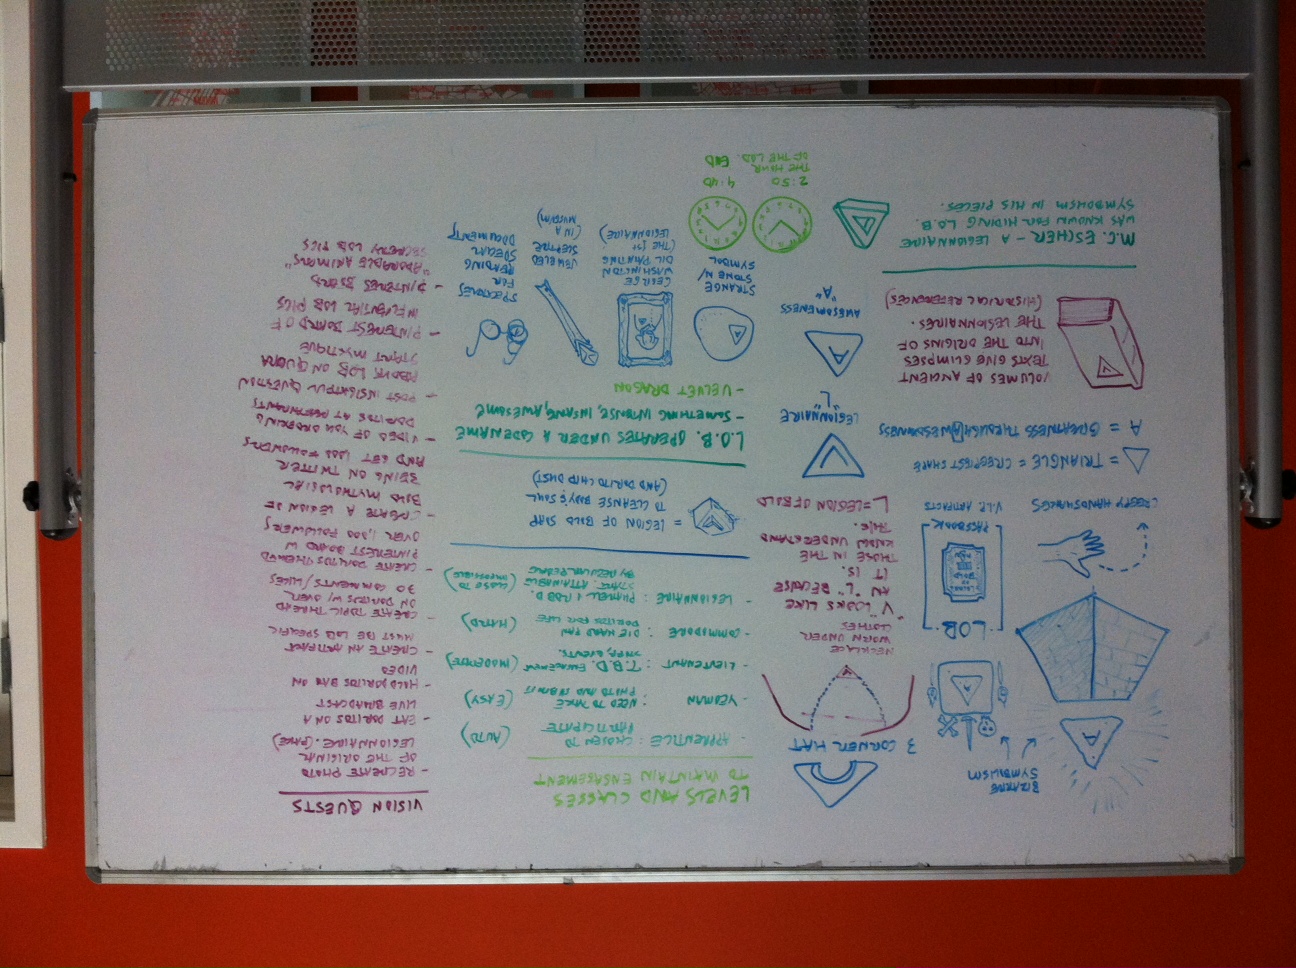 BIZARRE
SYMBOLISM
LOB.
FACEBOOK
CREEPY HANDSHAKES
V.I.P. ARTIFACTS
= TRIANGLE = CREEPIEST SHAPE
A = GREATNESS THROUGH AWESOMENESS
VOLUMES OF ANCIENT
TEXTS GIVE GLIMPSES
INTO THE ORIGINS OF
THE LEGIONNAIRES.
(HISTORICAL REFERENCES)
M.C. ESCHER - A LEGIONNAIRE
WAS KNOWN FOR HIDING L.O.B.
SYMBOLISM IN HIS PIECES.
3 CORNER HAT
NECKLACE
WORN UNDER
CLOTHES
"V" LOOKS LIKE
AN "L" BECAUSE
IT IS.
THOSE IN THE
KNOW UNDERSTAND
THIS.
L = LEGION OF BOLD
LEGIONNAIRE
"L"
AWESOMENESS
"A"
LEVELS AND CLASSES
TO MAINTAIN ENGAGEMENT
- APPRENTICE : CHOSEN TO PARTICIPATE (AUTO)
- YEOMAN : NEED TO TAKE PHOTO AND SUBMIT (EASY)
- LIEUTENANT : T.B.D. ENGAGEMENT (MODERATE)
- COMMODORE : DIE HARD FAN DORITOS FOR LIFE (HARD)
- LEGIONNAIRE : (CLOSE TO IMPOSSIBLE)
= LEGION OF BOLD SOAP
TO CLEANSE BODY'S SOUL
(AND DORITO CHIP DUST)
L.O.B. OPERATES UNDER A CODENAME
- SOMETHING INTENSE, INSANE, AWESOME
- VELVET DRAGON
STRANGE
STONE W/
SYMBOL
GEORGE
WASHINGTON
OIL PAINTING
(THE 1ST
LEGIONNAIRE)
JEWELED
SCEPTER
(IN A
MUSEUM)
SPECTACLES
FOR
READING
SECRET
DOCUMENTS
2:50
THE HOUR
OF THE LOB.
4:40
VISION QUESTS
- RECREATE PHOTO
OF THE ORIGINAL
LEGIONNAIRE. (FAKE)
- EAT DORITOS ON A
LIVE BROADCAST
- HOLD DORITOS BAG ON
VIDEO
- CREATE AN ARTIFACT
MUST BE LOB SPECIFIC
- CREATE TOPIC THREAD
ON DORITOS W/ OVER
30 COMMENTS/LIKES
- CREATE DORITOS THEMED
PINTEREST BOARD W
OVER 1,000 FOLLOWERS
- CREATE A LEGION OF
BOLD MYTHOLOGICAL
BEING ON TWITTER
AND GET 1000 FOLLOWERS
- VIDEO OF YOU ORDERING
DORITOS AT RESTAURANTS
- POST INSIGHTFUL QUESTION
ABOUT LOB ON QUORA
START MYSTIQUE
- PINTEREST BOARD OF
INFLUENTIAL LOB PICS
- PINTEREST BOARD
"ADORABLE ANIMALS"
SECRETLY LOB PICS